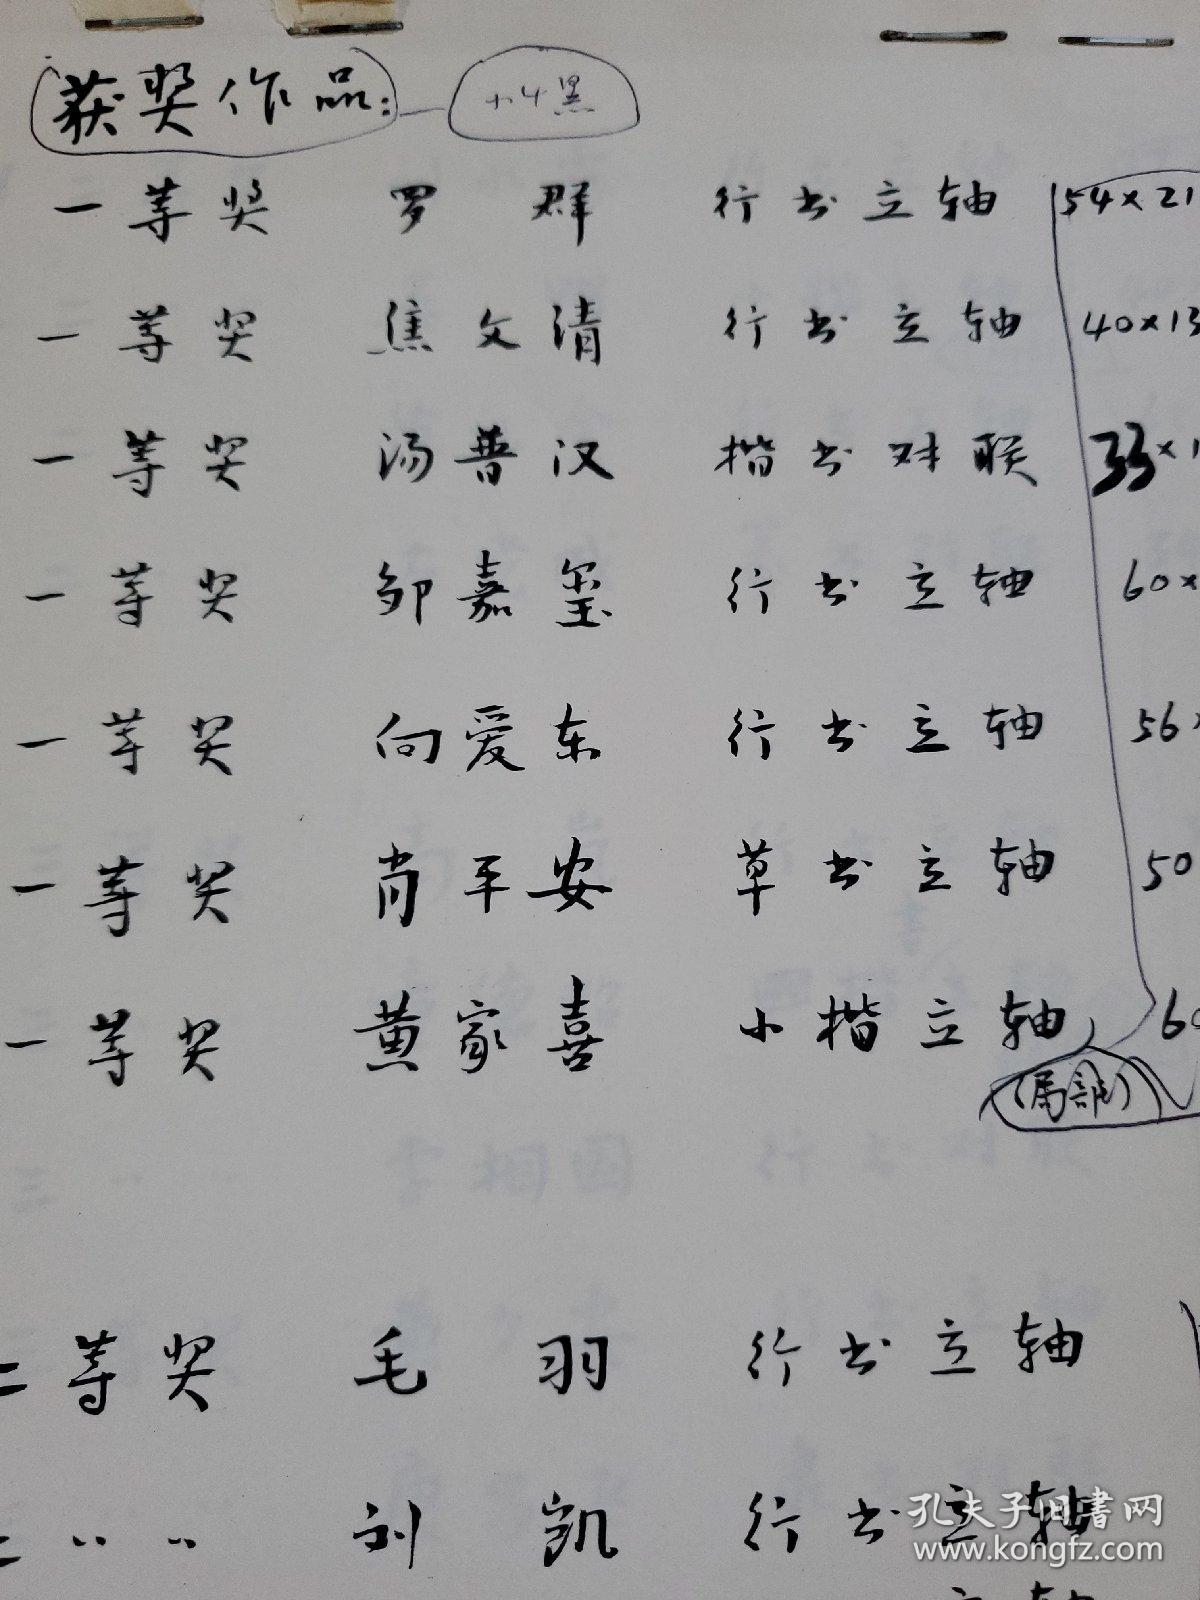 获奖作品: 小4黑
一等奖 罗群 行书立轴 54×21
一等奖 焦文清 行书立轴 40×13
一等奖 汤普汉 楷书对联 33×1
一等奖 邹嘉玺 行书立轴 60×
一等奖 向爱东 行书立轴 56×
一等奖 肖平安 草书立轴 50
一等奖 黄家喜 小楷立轴 60
(局部)
二等奖 毛羽 行书立轴
二〃〃 刘凯 行书立轴
立轴
孔夫子旧書网
www.kongfz.com